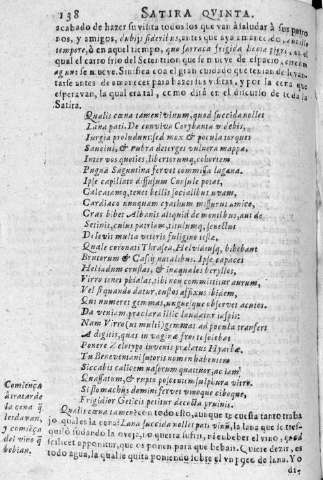 138 SATIRA QVINTA.
acabado de hazer su visita todos los que van à saludar à sus patro
nos, y amigos,
tempore, ò en aquel tiempo, que
el qual el carro frio del Setentrion que se mueve de espacio,
agunt se mueve. Significa con el gran cuidado que tenian de levan-
tarse antes de amanecer para hazer las visitas, y por la cena que
esperavan, la qual era tal, como dirà en el discurso de toda la
Satira.
Qualis cœna tamen? vinum, quod succida nollet
Lana pati. De conviva Corybanta videbis.
Iurgia proludunt: sed mox & pocula torques
Saucius, & rubra deterges vulnera mappa,
Inter vos quoties, libertorumque cohortem
Pugna Saguntina fervet commissa lagena.
Ipse capillato diffusum Consule potat,
Calcatamque tenet bellis socialibus uvam,
Cardiaco nunquam cyathum missurus amico.
Cras bibet Albanis aliquid de montibus, aut de
Setinis, cuius patriam, titulumque, senectus
Delevit multa veteris fuligine testæ,
Quale coronati Thrasea, Helvidiusque bibebant
Brutorum & Cassij natalibus. Ipse capaces
Heliadum crustas, & inæquales beryllos,
Virro tenet phialas, tibi non committitur aurum,
Vel si quando datur, custos affixus ibidem,
Qui numeret gemmas, ungues que observet acutos.
Da veniam, præclara illic laudatur iaspis:
Nam Virro (ut multi) gemmas ad pocula transfert
A digitis, quas in vaginæ fronte solebat
Ponere Zelotypo iuvenis prælatus Hyarbæ.
Tu Beneventani sutoris nomen habentem
Siccabis calicem nasorum quatuor, ac iam
Quassatum, & rupto poscentem sulphura vitro.
Si stomachus domini fervet vinoque ciboque,
Frigidior Geticis petitur decocta pruinis.
Comiença
à tratar de
la cena q̃
les davan,
y comiẽça
del vino q̃
bebian.
Qualis cœna tamen? con todo esso, aunque te cuesta tanto traba
jo, quales la cena? Lana succida nollet pati vinũ, la lana que se tres-
quilò sudando la oveja, no querria sufrir, ni embeber el vino, quod
scilicet apponitur, que os ponen para que bebais. Quiere dezir, es
todo agua, la qual se quita poniendo sobre el un pedaço de lana. Y o
dize